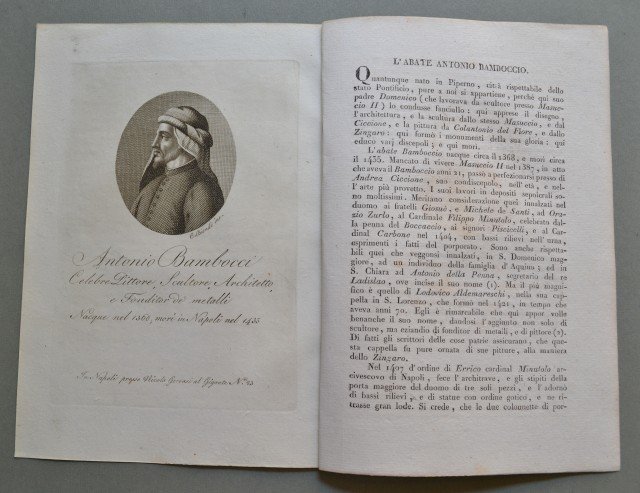 Antonio Bambocci
Celebre Pittore, Scultore, Architetto,
e Fonditor de' metalli
Nacque nel 1368, morì in Napoli nel 1435
In Napoli presso Nicola Gervasi al Gigante N.° 23
L'ABATE ANTONIO BAMBOCCIO.
Quantunque nato in Piperno, città rispettabile dello
stato Pontificio, pure a noi si appartiene, perchè qui suo
padre Domenico (che lavorava da scultore presso Masuc-
cio II) lo condusse fanciullo: qui apprese il disegno,
l'architettura, e la scultura dallo stesso Masuccio, e dal
Ciccione, e la pittura da Colantonio del Fiore, e dallo
Zingaro: qui formò i monumenti della sua gloria: qui
educò varj discepoli; e qui morì.
L'abate Bamboccio nacque circa il 1368, e morì circa
il 1435. Mancato di vivere Masuccio II nel 1387, in atto
che aveva il Bamboccio anni 21, passò a perfezionarsi presso di
Andrea Ciccione, suo condiscepolo, nell'età, e nel-
l'arte più provetto. I suoi lavori in depositi sepolcrali so-
no moltissimi. Meritano considerazione quei innalzati nel
duomo ai fratelli Giosuè, e Michele de Santi, ad Ora-
zio Zurlo, al Cardinale Filippo Minutolo, celebrato dal-
la penna del Boccaccio, ai signori Piscicelli, e al Car-
dinal Carbone nel 1404, con bassi rilievi nell'urna,
esprimenti i fatti del porporato. Sono anche rispetta-
bili quei che veggonsi innalzati, in S. Domenico mag-
giore, ad un individuo della famiglia d'Aquino; ed in
S. Chiara ad Antonio della Penna, segretario del re
Ladislao, ove incise il suo nome (1). Ma il più magni-
fico è quello di Lodovico Aldemareschi, nella sua cap-
pella in S. Lorenzo, che formò nel 1421, in tempo che
aveva anni 70. Egli è rimarchevole che quì appor volle
benanche il suo nome, dandosi l'aggiunto non solo di
scultore, ma eziandio di fonditor di metalli, e di pittore (2).
Di fatti gli scrittori delle cose patrie assicurano, che
questa cappella fu pure ornata di sue pitture, alla maniera
dello Zingaro.
Nel 1407 d'ordine di Errico cardinal Minutolo ar-
civescovo di Napoli, fece l'architrave, e gli stipiti della
porta maggiore del duomo di tre soli pezzi, e l'adornò
di bassi rilievi, e di statue con ordine gotico, e ne ri-
trasse gran lode. Si crede, che le due colonnette di por-